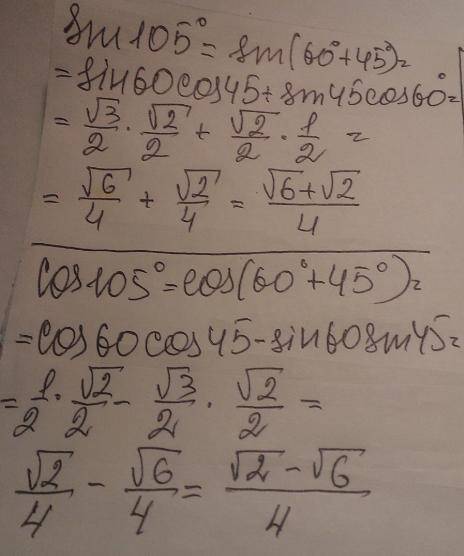 sin105°=sin(60°+45°)=
=sin60cos45+sin45cos60°=
=√3/2·√2/2+√2/2·1/2=
=√6/4+√2/4=(√6+√2)/4
cos105°=cos(60°+45°)=
=cos60cos45-sin60sin45=
=1/2·√2/2-√3/2·√2/2=
√2/4-√6/4=(√2-√6)/4